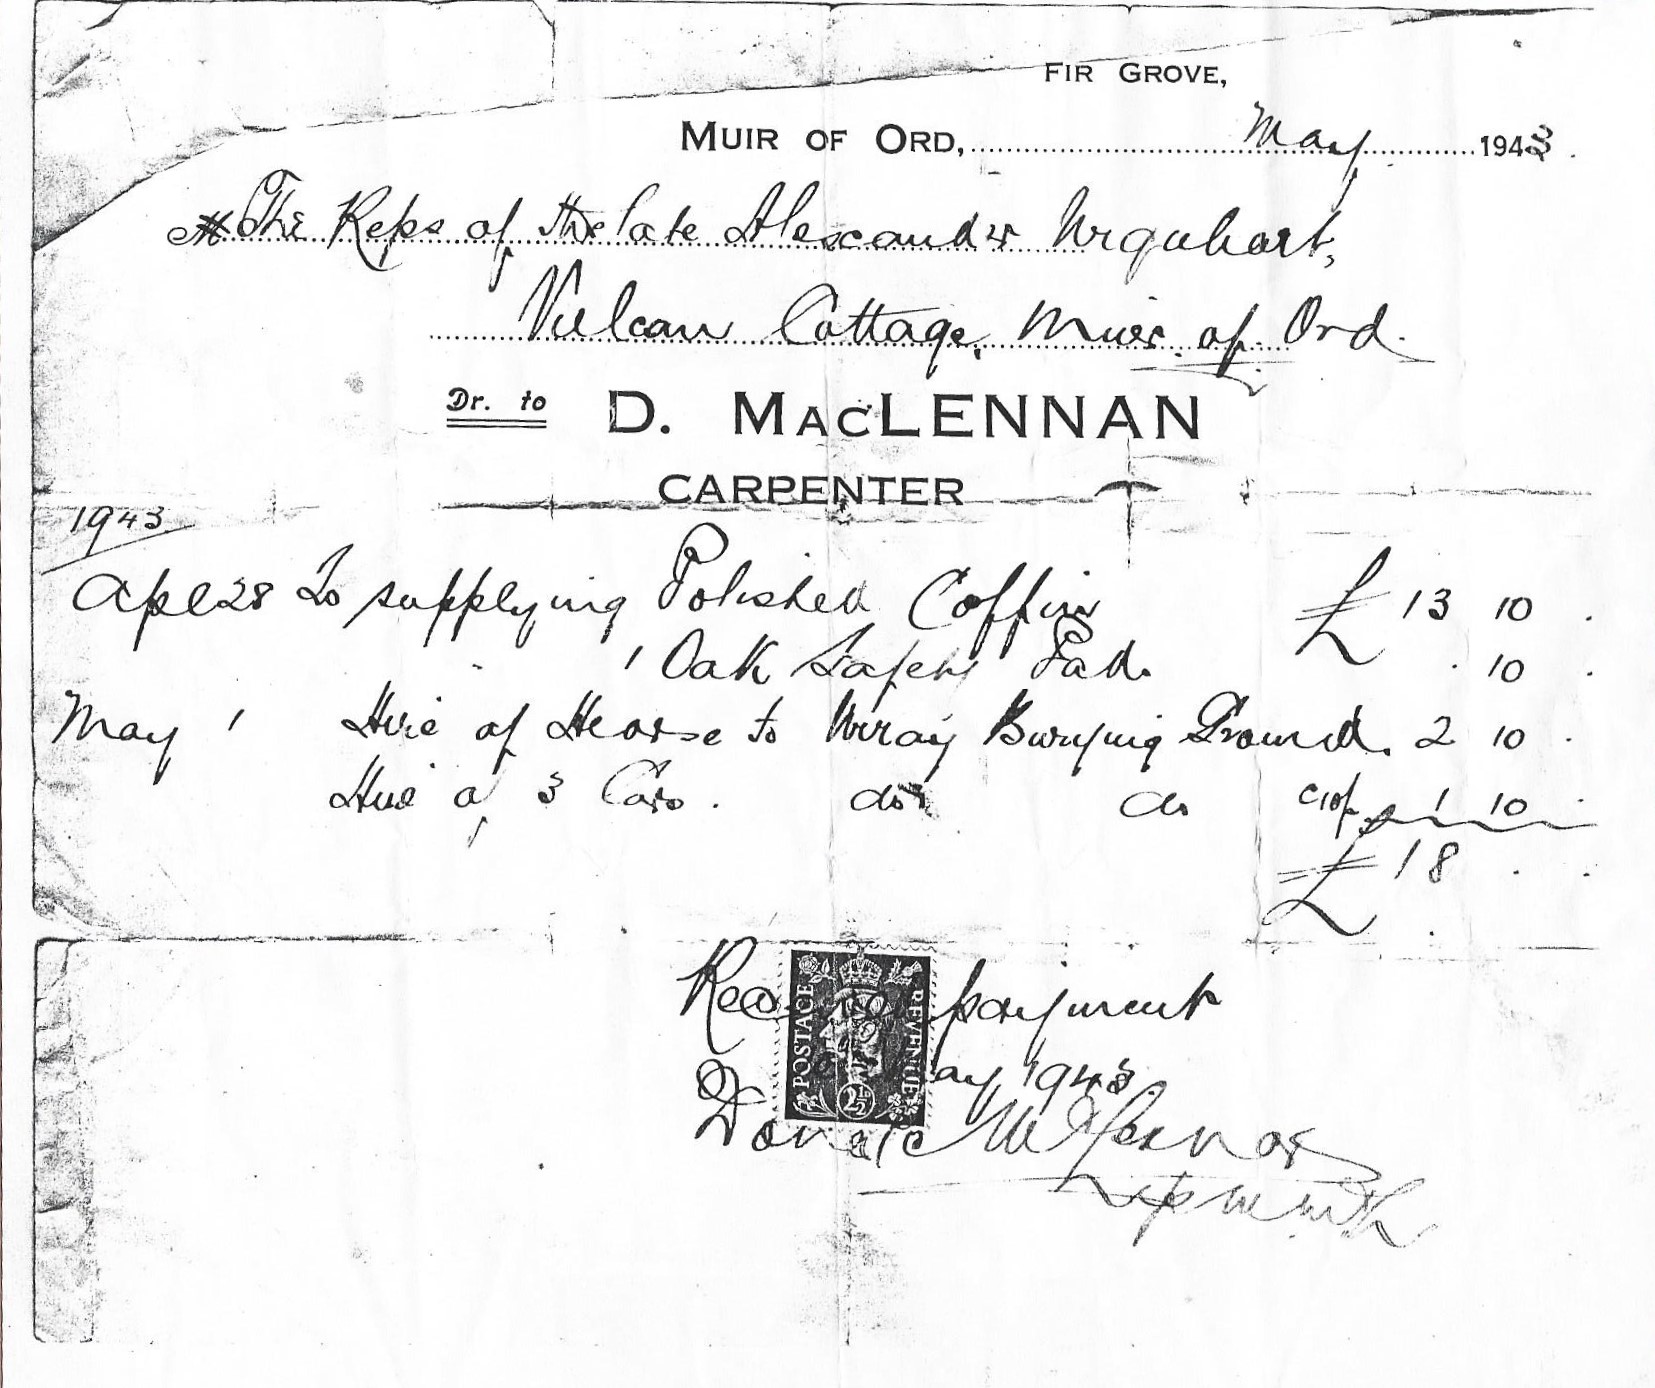 FIR GROVE,
MUIR OF ORD, May 1943
M The Reps of the late Alexander Urquhart,
Vulcan Cottage, Muir of Ord.
Dr. to D. MACLENNAN
CARPENTER
1943
Apl 28 To supplying Polished Coffin £ 13 10 .
" 1 Oak Safety Pad. . 10 .
May 1 Hire of Hearse to Urray Burying Ground. 2 10 .
Hire of 3 Cars. do do @ 10/- 1 10 .
£ 18 . .
Received payment
May 1943
Donald
POSTAGE REVENUE
2½